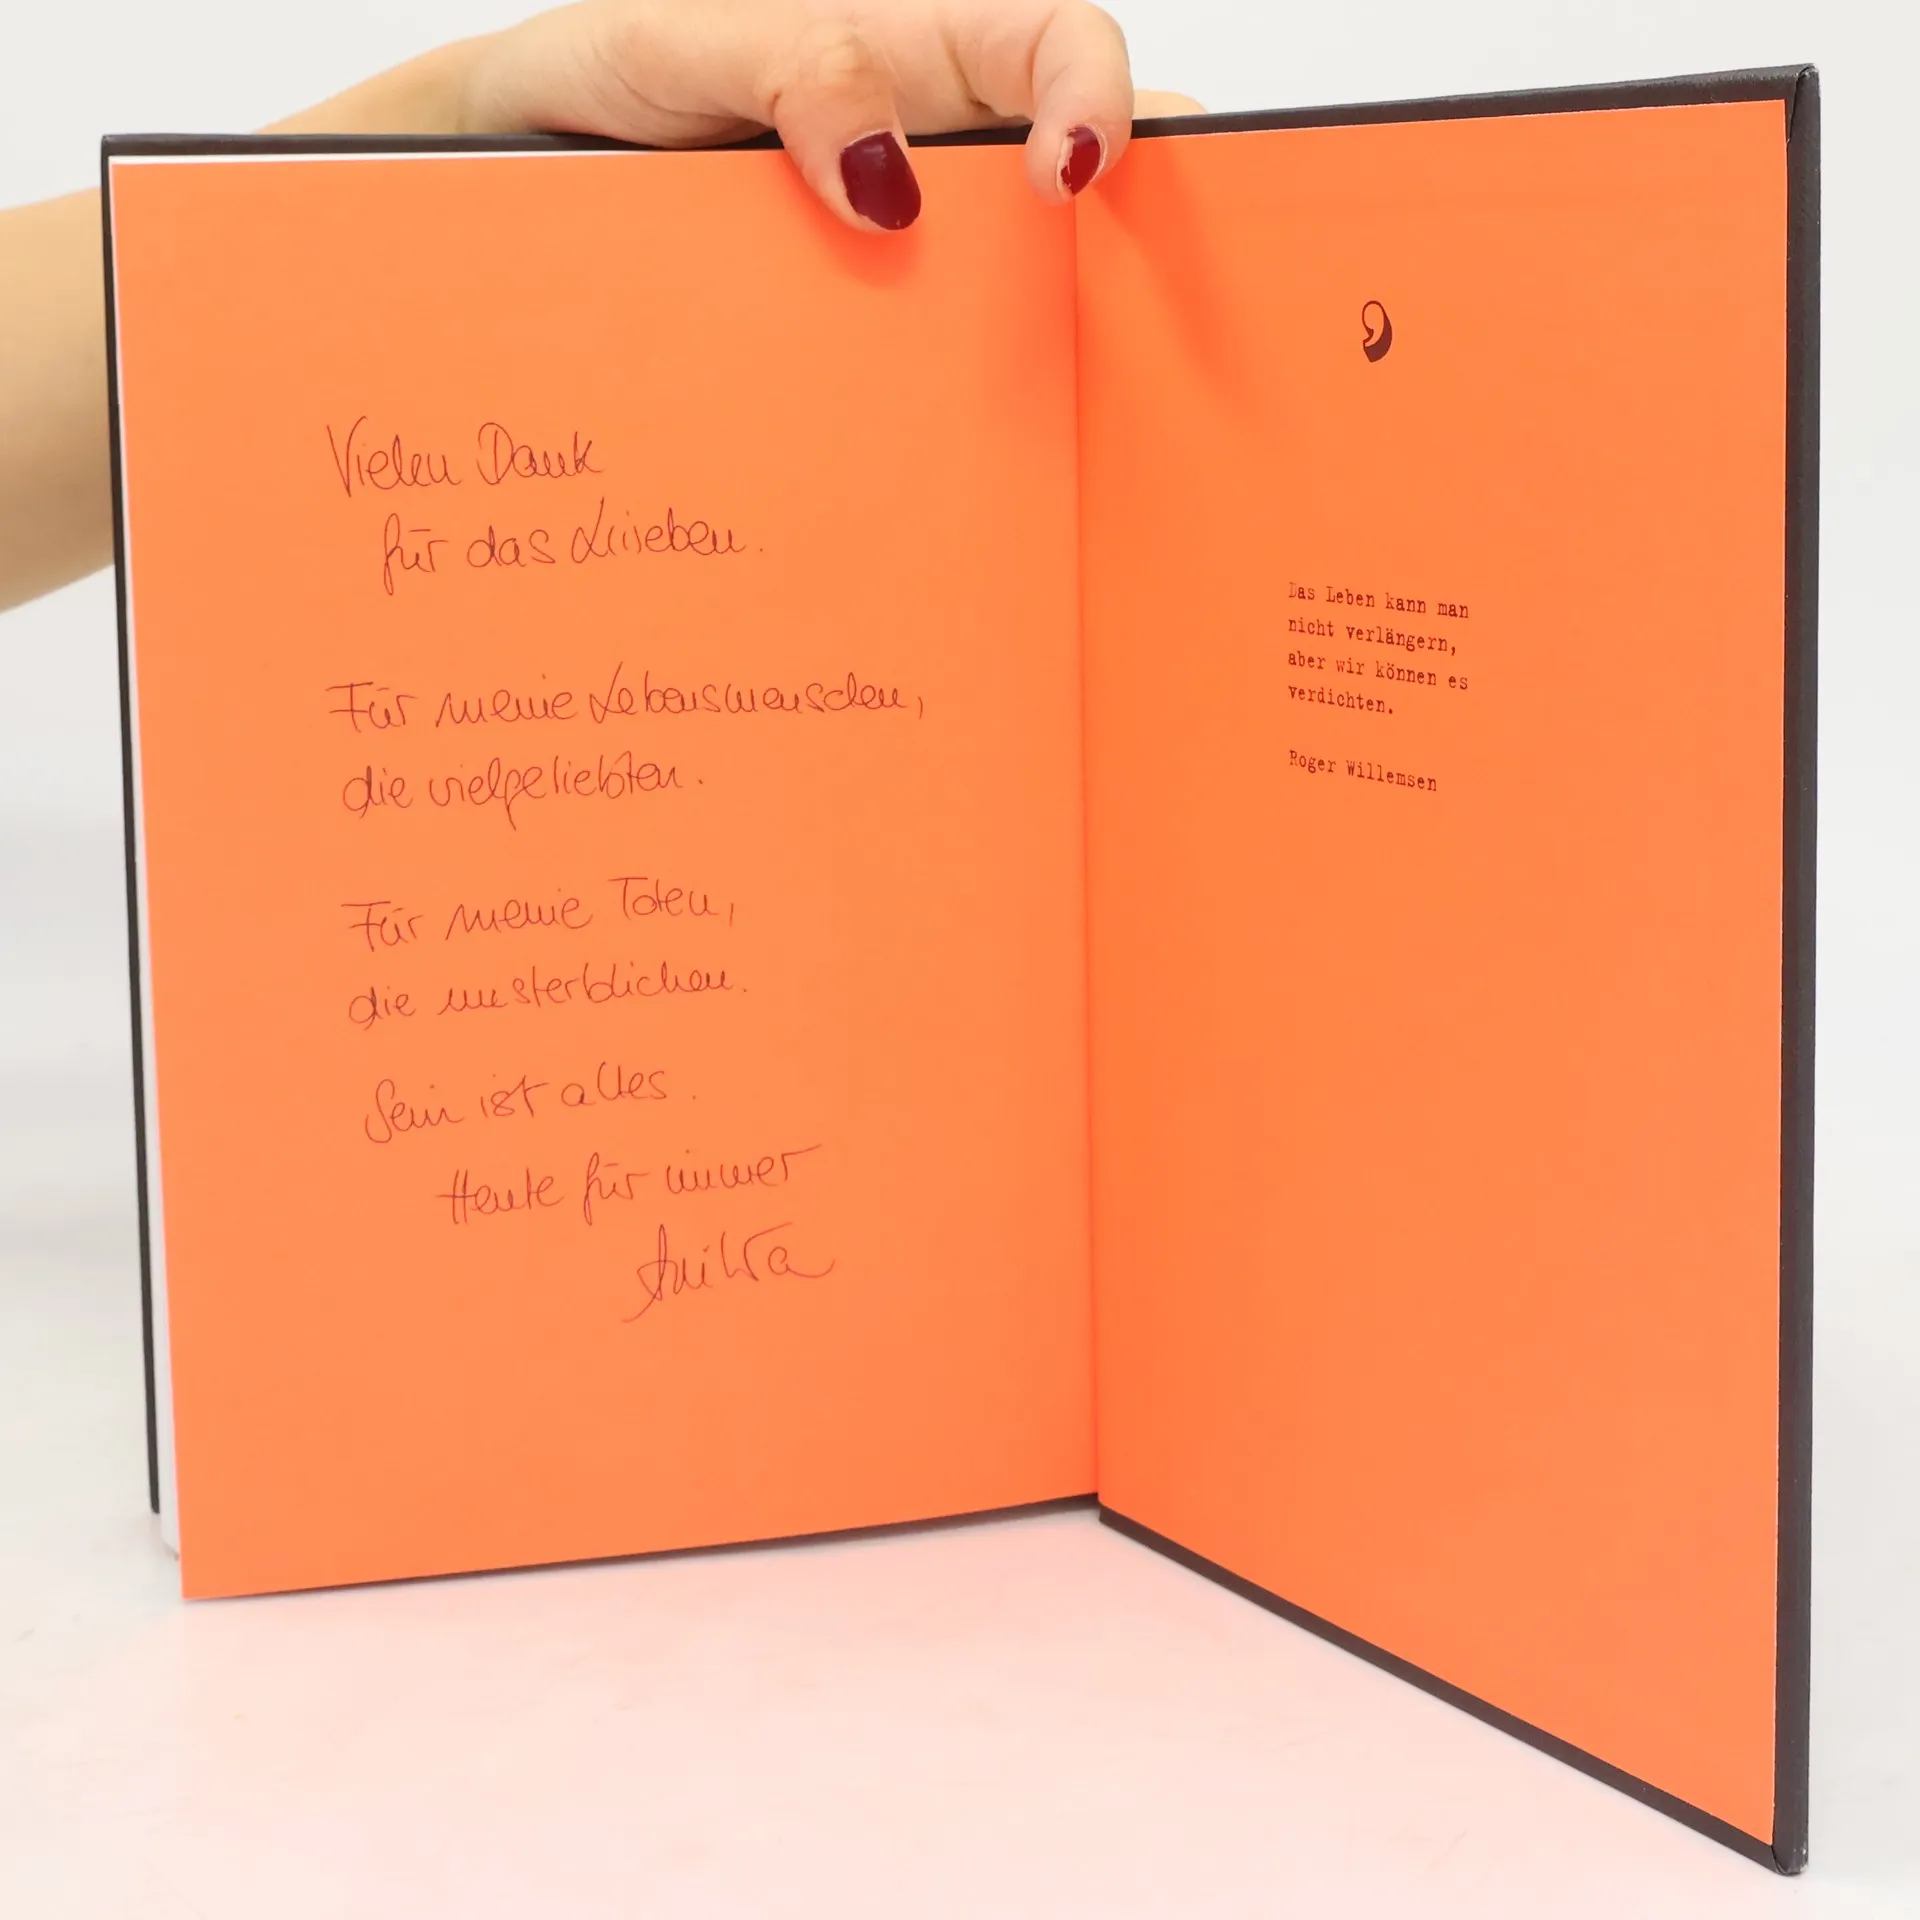 Vielen Dank
für das Liieben.
Für meine Lebensmenschen,
die vielgeliebten.
Für meine Toten,
die unsterblichen.
Sein ist alles.
Heute für immer
Das Leben kann man
nicht verlängern,
aber wir können es
verdichten.
Roger Willemsen